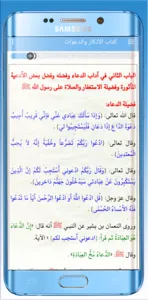 SAMSUNG
كتاب الأذكار والدعوات
الباب الثاني في آداب الدعاء وفضله وفضل بعض الأدعية
المأثورة وفضيلة الاستغفار والصلاة على رسول الله ﷺ
فضيلة الدعاء:
قال الله تعالى: {وَإِذَا سَأَلَكَ عِبَادِي عَنِّي فَإِنِّي قَرِيبٌ أُجِيبُ
دَعْوَةَ الدَّاعِ إِذَا دَعَانِ فَلْيَسْتَجِيبُوا لِي}.
وقال تعالى: {ادْعُوا رَبَّكُمْ تَضَرُّعاً وَخُفْيَةً إِنَّهُ لَا يُحِبُّ
الْمُعْتَدِينَ}.
وقال تعالى: {وَقَالَ رَبُّكُمُ ادْعُونِي أَسْتَجِبْ لَكُمْ إِنَّ الَّذِينَ
يَسْتَكْبِرُونَ عَنْ عِبَادَتِي سَيَدْخُلُونَ جَهَنَّمَ دَاخِرِينَ}.
وقال عز وجل: {قُلِ ادْعُوا اللَّهَ أَوِ ادْعُوا الرَّحْمَنَ أَيّاً مَا تَدْعُوا
فَلَهُ الْأَسْمَاءُ الْحُسْنَى}.
وروى النعمان بن بشير عن النبي ﷺ أنه قال: "إِنَّ الدُّعَاءَ
هُوَ الْعِبَادَةُ ثم قرأ: {ادعوني أستجب لكم} " الآية.
وقال ﷺ: "الدُّعَاءُ مُخُّ الْعِبَادَةِ".